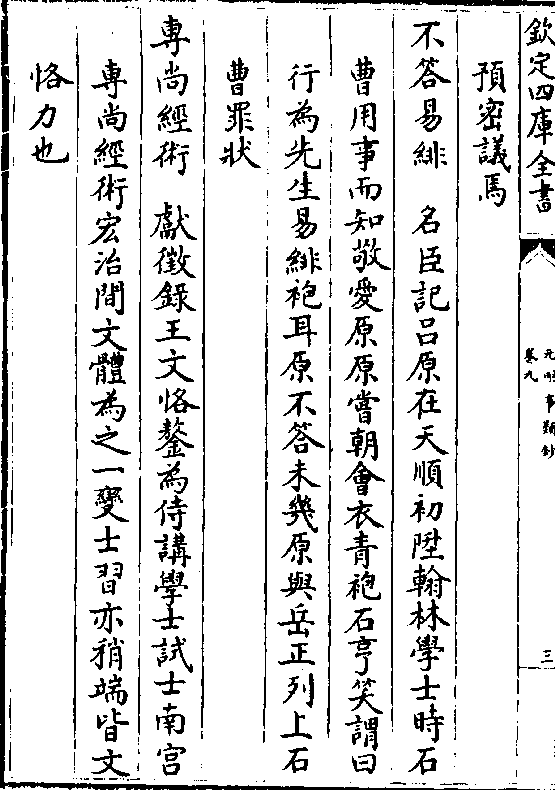 欽定四庫全書
元明事類鈔
卷九
三
預密議焉
不答易緋　名臣記呂原在天順初陞翰林學士時石
曹用事而知敬愛原原嘗朝會衣青袍石亨笑謂曰
行為先生易緋袍耳原不答未幾原與岳正列上石
曹罪狀
專尚經術　獻徵錄王文恪鏊為侍講學士試士南宫
專尚經術宏治間文體為之一變士習亦稍端皆文
恪力也